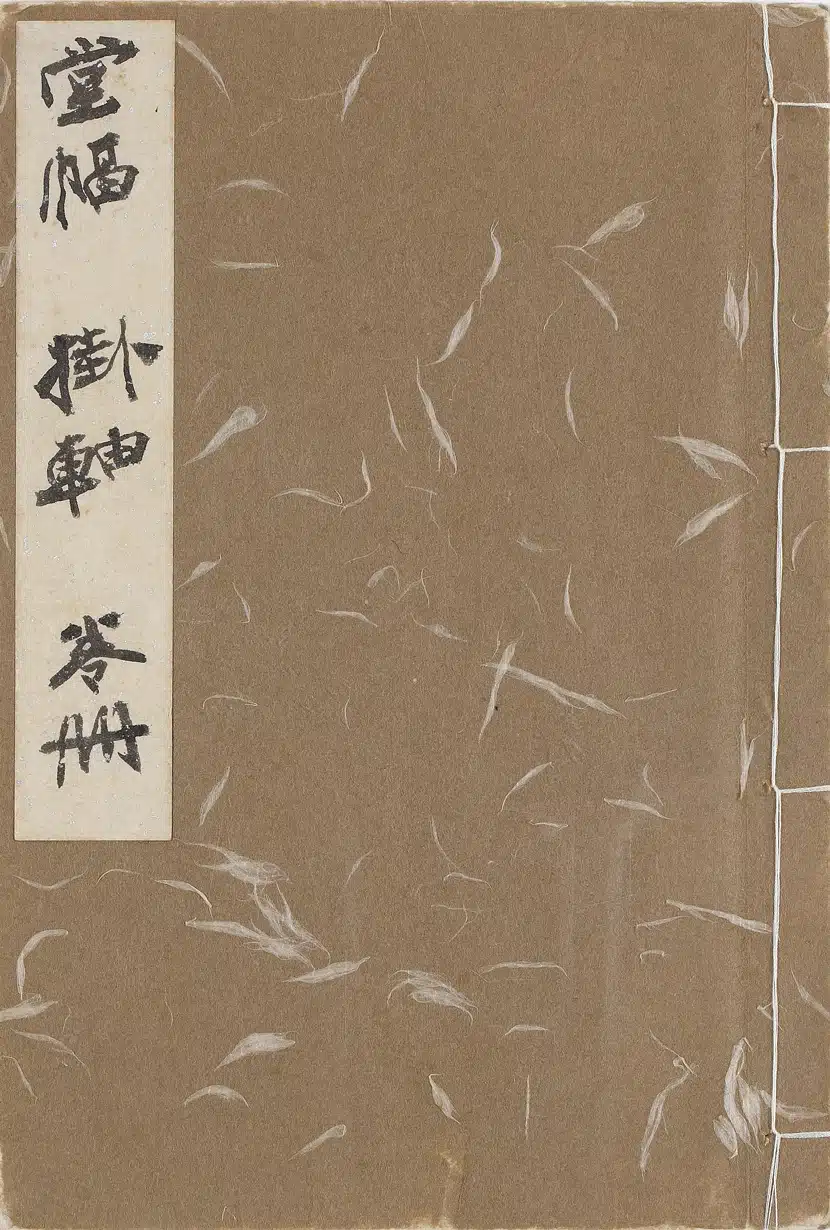 堂幅 掛軸 卷冊